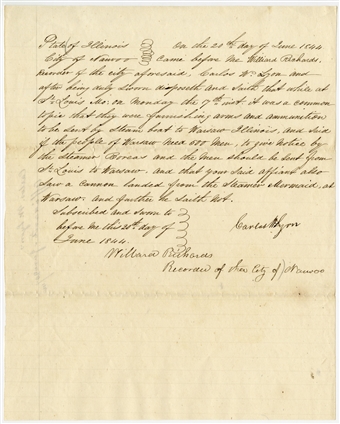 State of Illinois On the 20th day of June 1844
City of Nauvoo Came before me Willard Richards,
Recorder of the city aforesaid, Carlos W. Lyon and
after being duly sworn deposeth and saith that while at
St. Louis, Mo. on Monday the inst it was a common
topic that they were furnishing arms and ammunition
to be sent by Steam boat to Warsaw Illinois, and said
if the people of Warsaw need 500 men, to give notice by
the Steamer Boreas and the men should be sent from
St Louis to Warsaw. and that your said affiant also
saw a Cannon landed from the Steamer Mermaid, at
Warsaw. and further he saith not.
Subscribed and Sworn to
before me this 20th day of
June 1844.
Carlos W. Lyon
Willard Richards
Recorder of City of Nauvoo